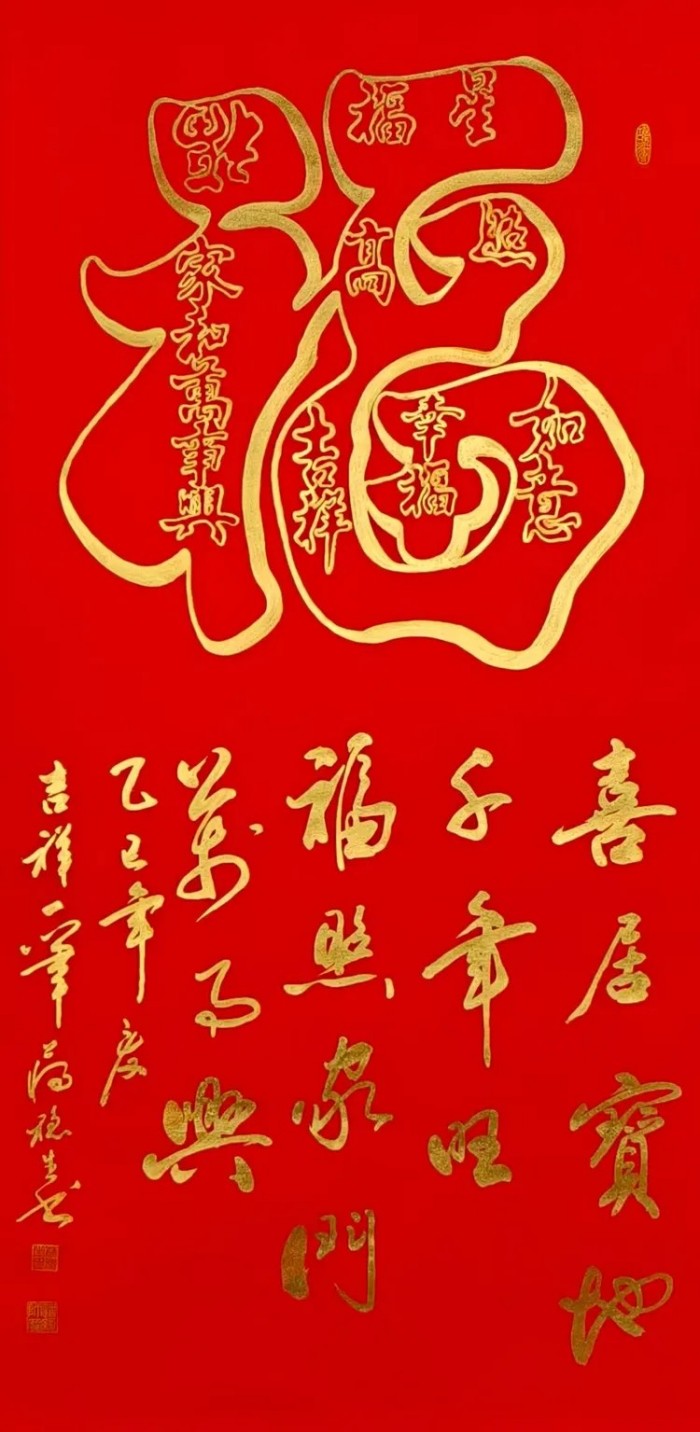 福
福
福星
高照
家和萬事興
吉祥
幸福
如意
喜居寶地
千年旺
福照家門
萬事興
乙巳年
吉祥一筆